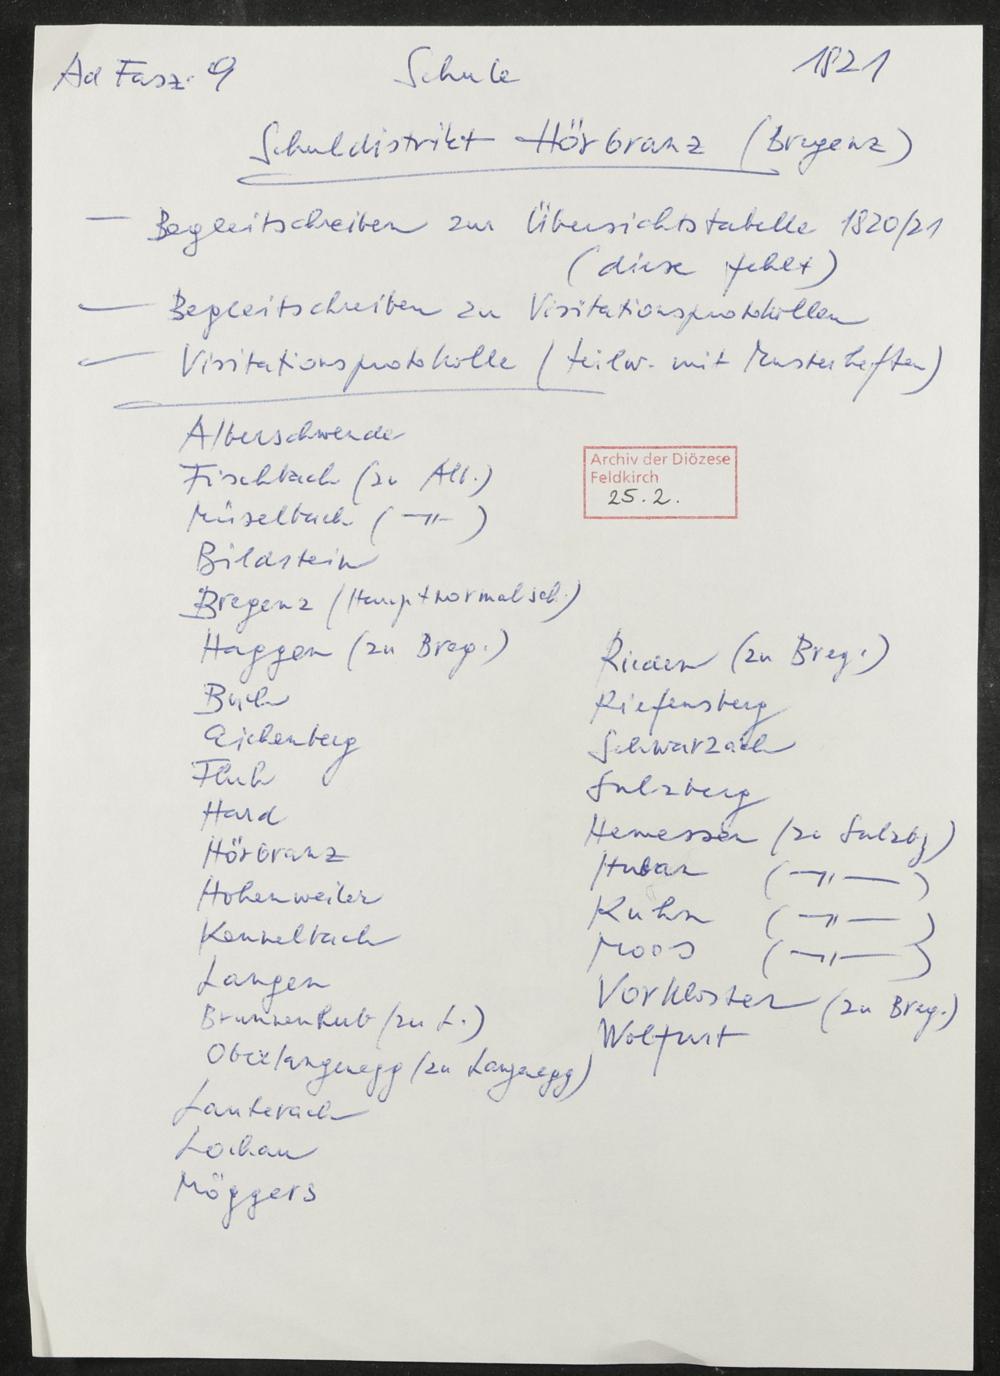 Ad Fasz. 9 Schule 1821
Schuldistrikt Hörbranz (Bregenz)
— Begleitschreiben zur Übersichtstabelle 1820/21
(diese fehlt)
— Begleitschreiben zu Visitationsprotokollen
— Visitationsprotokolle (teilw. mit Musterheften)
Alberschwende
Fischbach (zu Alb.)
Müselbach (—〃—)
Bildstein
Bregenz (Hauptnormalsch.)
Haggen (zu Breg.)
Buch
Eichenberg
Fluh
Hard
Hörbranz
Hohenweiler
Kennelbach
Langen
Brunnenhub (zu L.)
Oberlangenegg (zu Langenegg)
Lauterach
Lochau
Möggers
Archiv der Diözese
Feldkirch
25.2.
Rieden (zu Breg.)
Riefensberg
Schwarzach
Sulzberg
Hermessen (zu Sulzbg)
Huban (—〃—)
Kuhn (—〃—)
Moos (—〃—)
Vorkloster (zu Breg.)
Wolfurt